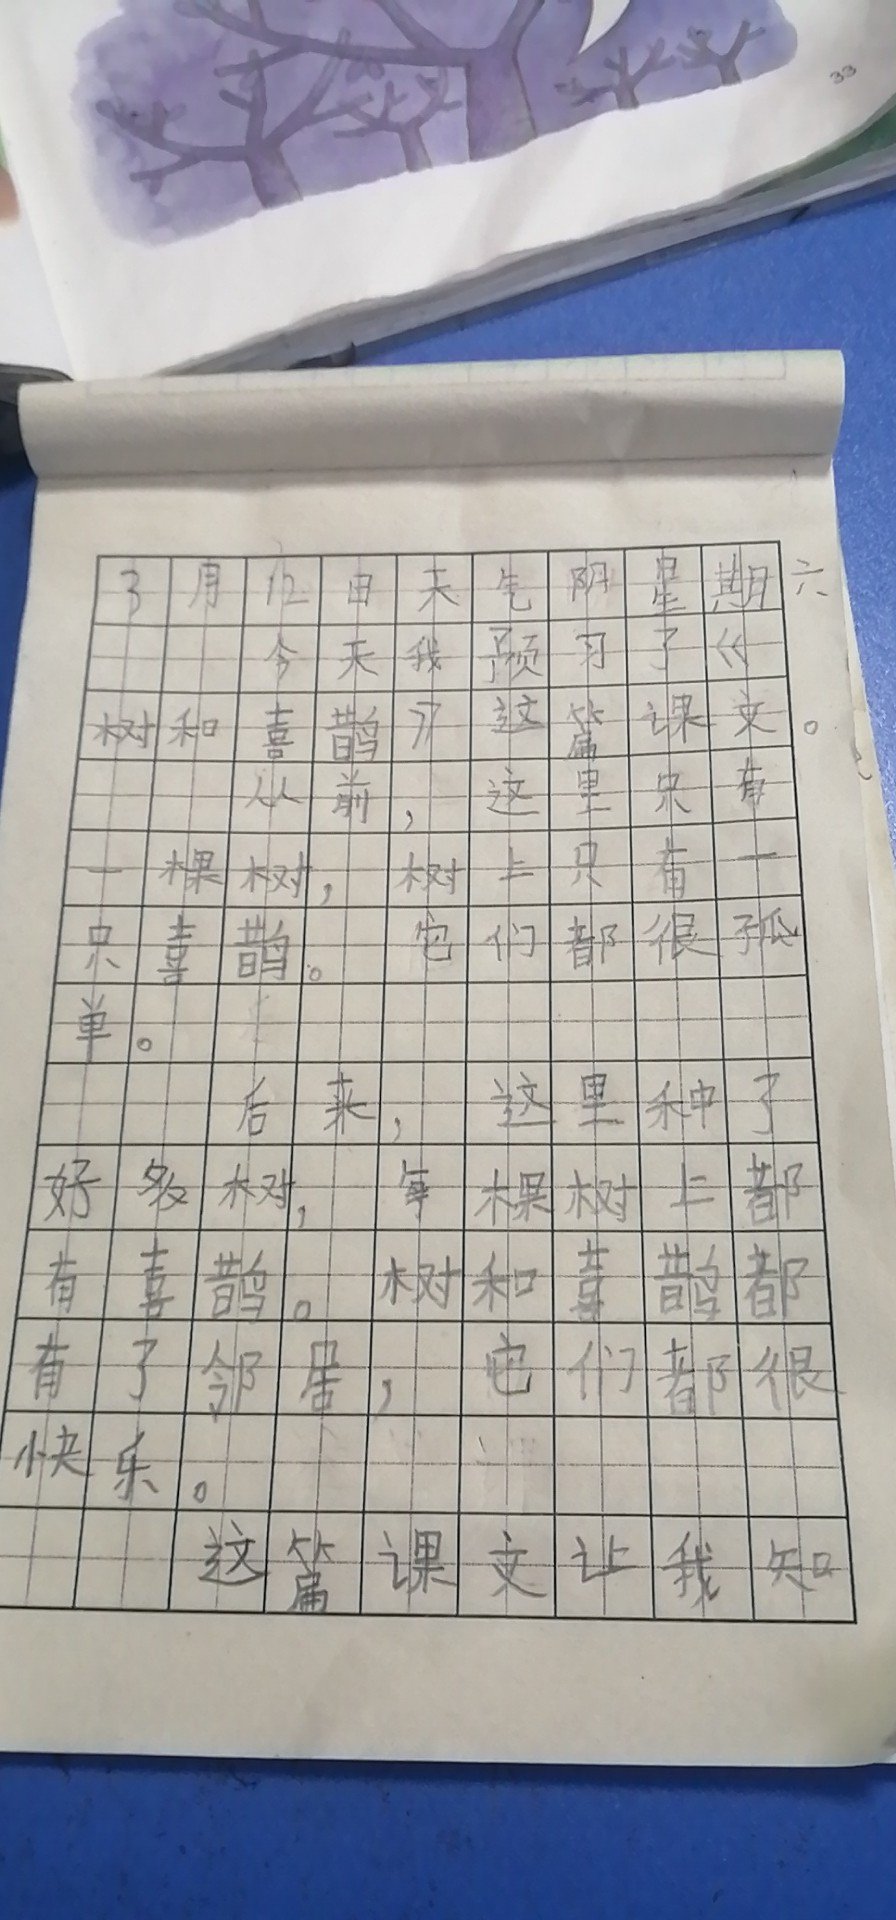 33
3月12日天气阴星期六
今天我预习了《
树和喜鹊》这篇课文。
从前，这里只有
一棵树，树上只有一
只喜鹊。它们都很孤
单。
后来，这里种了
好多树，每棵树上都
有喜鹊。树和喜鹊都
有了邻居，它们都很
快乐。
这篇课文让我知